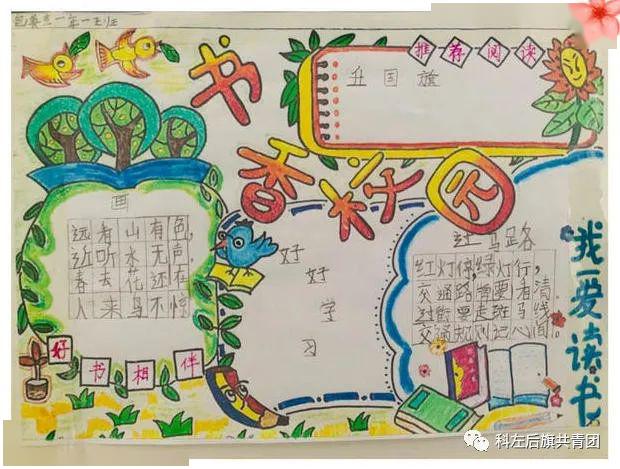 一年一班
书香校园
推荐阅读
升国旗
画
远看山有色,
近听水无声.
春去花还在
人来鸟不惊
好书相伴
好好学习
过马路
红灯停绿灯行,
交通路牌要看清
过街要走斑马线
交通规则记心间。
我爱读书
科左后旗共青团